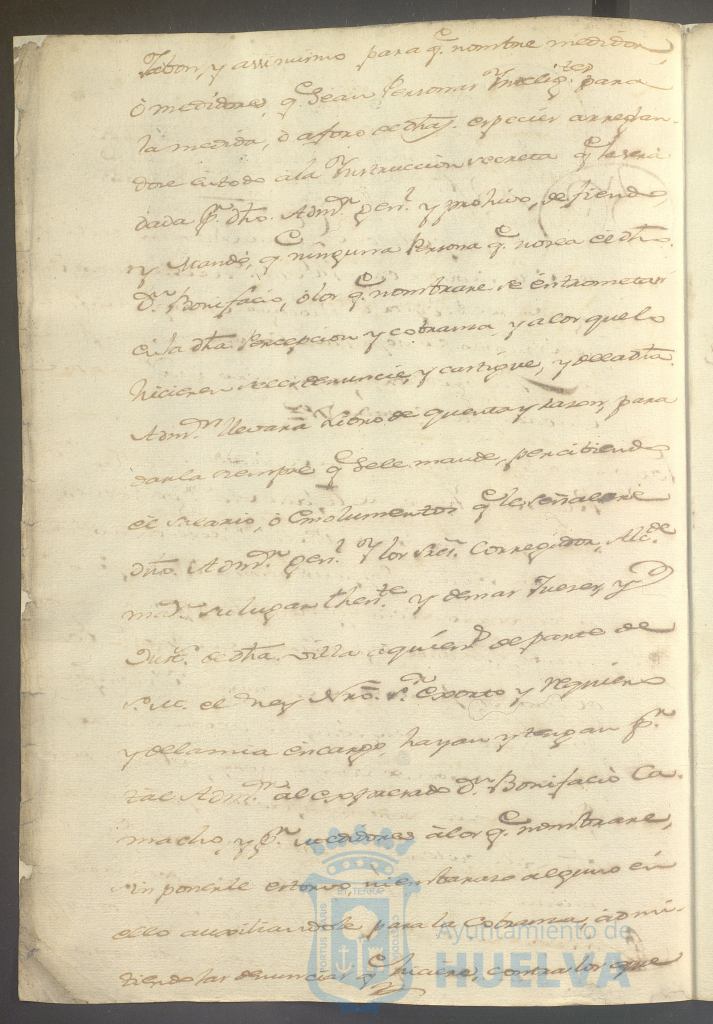 Jabon, y assimismo para q.e nombre medidor,
ò medidores, q.e Sean Personas Ynteligtes para
la medida, ò aforo de dhas. especies arreglan-
dose entodo ala Ynstruccion secreta q.e le será
dada pr. dho. Admor. genl. y prohivo, defiendo,
y Mando, q.e ninguna Persona q.e nosea el dho.
Dn. Bonifacio, òlos q.e nombrare se éntrometa
en la dha Percepcion y cobranza, y alos quelo
hicieren denuncie, y castigue, y dela dha.
Admon. llevará Libro de quenta y razon, para
darla siempre q.e Sele mande, percibiendo
el Salario, ò Emolumentos q.e le señalare
dho. Admor. genl. Ylos Sres. Corregidor, Alcde.
mor. su lugar thente. y demas Jueces, y
Justs. de dha. villa àquienes de parte de
S.M. el Rey Nro. Sr. Exorto y requiero
y delamia éncargo, hayan y tengan pr.
tal Admor. àl expresado Dn. Bonifacio Ca-
macho, y pr. medidores àlos q.e nombrare,
sin ponerle estorvo, niembarazo alguno én
ello auxiliandole para la Cobranza, admi-
tiendo las denuncias q.e hiciere, contra los que
Ayuntamiento de
HUELVA
PORTUS MARIS ET TERRAE CUSTODIA